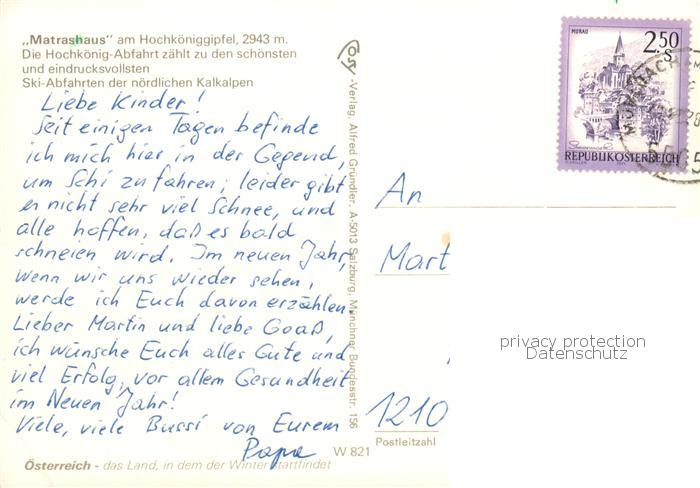 „Matrashaus" am Hochköniggipfel, 2943 m.
Die Hochkönig-Abfahrt zählt zu den schönsten
und eindrucksvollsten
Ski-Abfahrten der nördlichen Kalkalpen
Liebe Kinder!
Seit einigen Tagen befinde
ich mich hier in der Gegend,
um Schi zu fahren; leider gibt
es nicht sehr viel Schnee, und
alle hoffen, daß es bald
schneien wird. Im neuen Jahr,
wenn wir uns wieder sehen,
werde ich Euch davon erzählen.
Lieber Martin und liebe
ich wünsche Euch alles Gute und
viel Erfolg, vor allem Gesundheit
im Neuen Jahr!
Viele, viele Bussi von Eurem
Papa
W 821
Österreich - das Land, in dem der Winter stattfindet
Verlag Alfred Gründler, A-5013 Salzburg, Münchner Bundesstr. 156
MURAU
2.50
S
REPUBLIK ÖSTERREICH
An
Mart
1210
Postleitzahl
privacy protection
Datenschutz